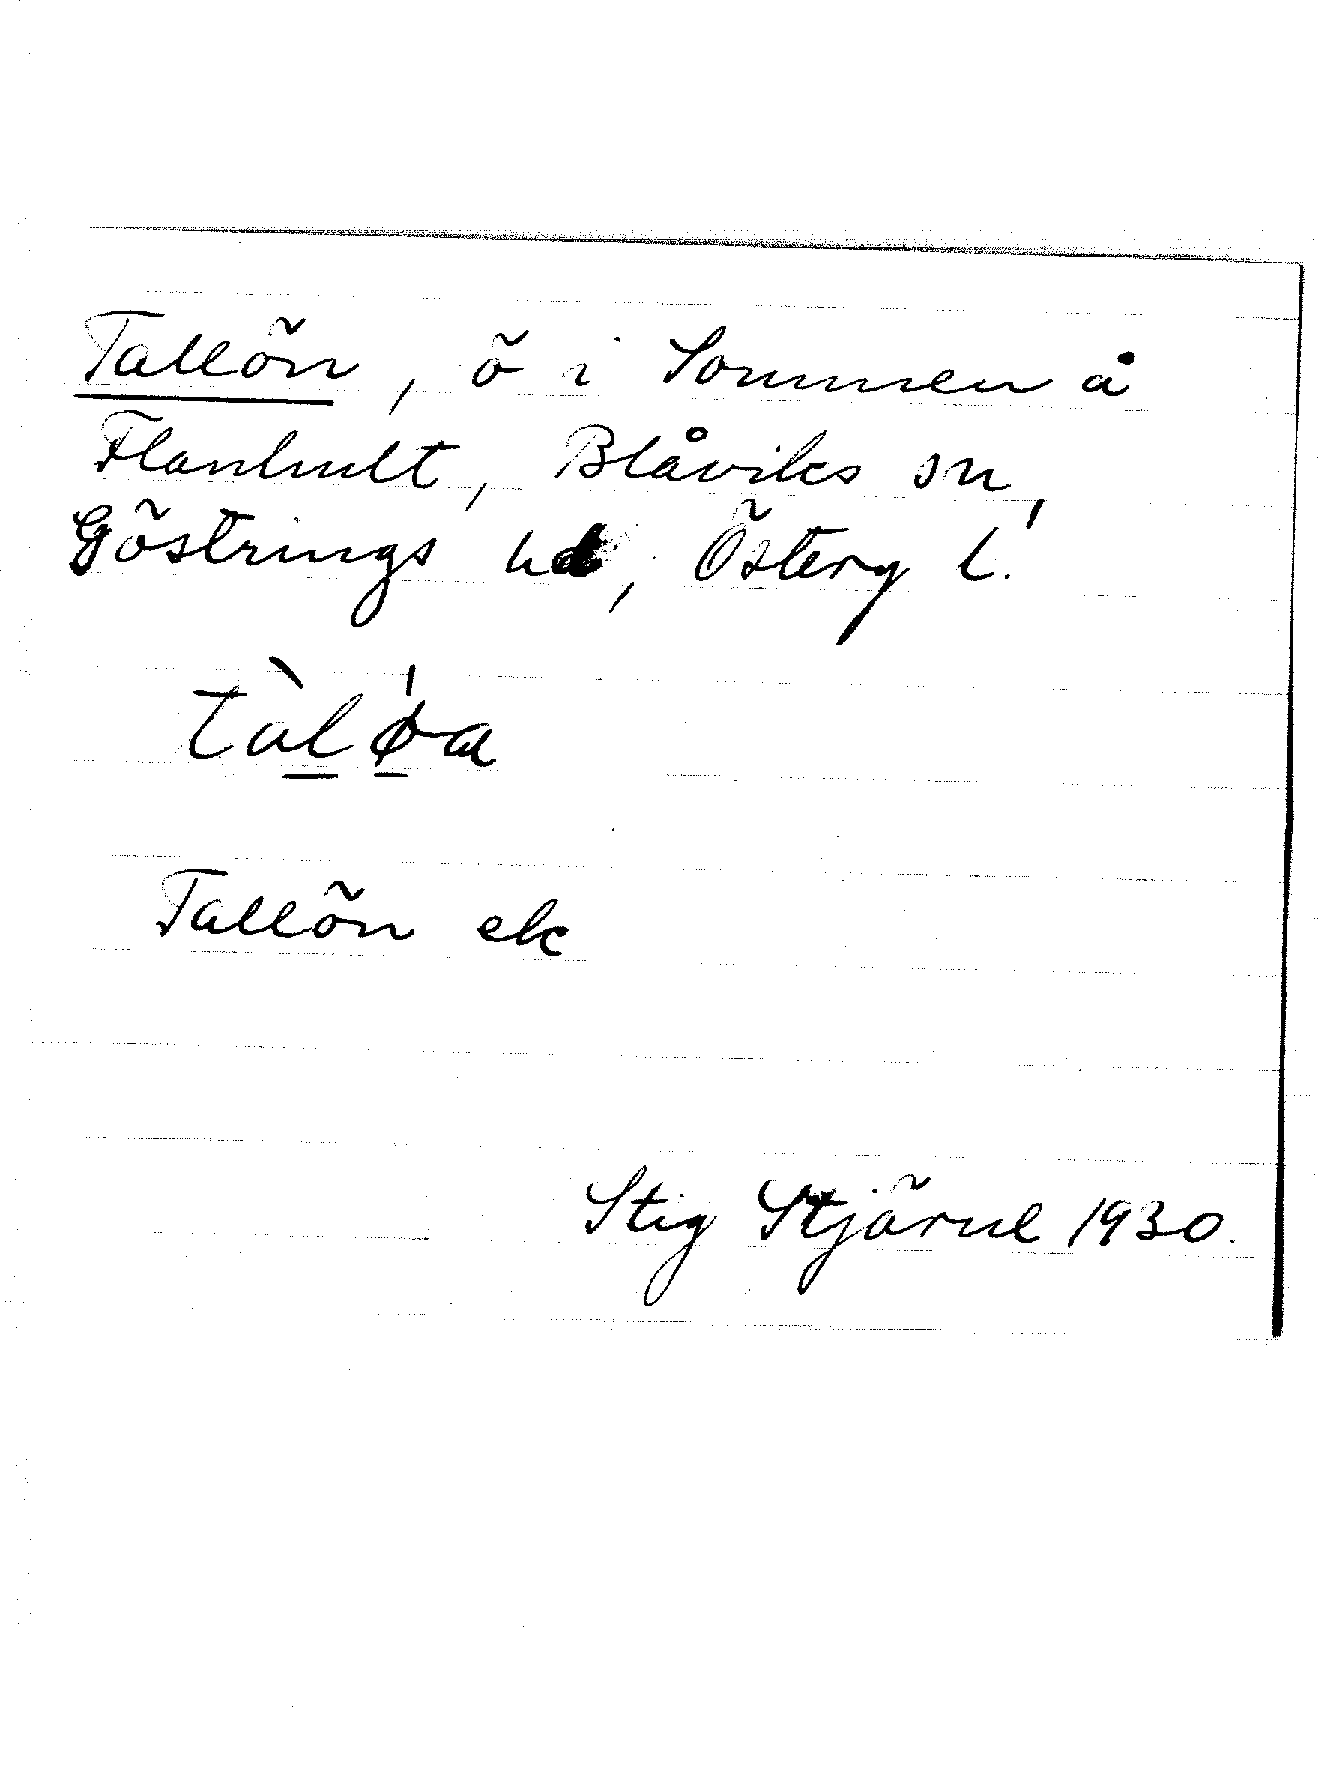 Tallön, ö i Sommen å
Flanhult, Blåviks sn,
Göstrings hd, Österg l.
tàl̲ǿ̲a
Tallön ek
Stig Stjärne 1930.